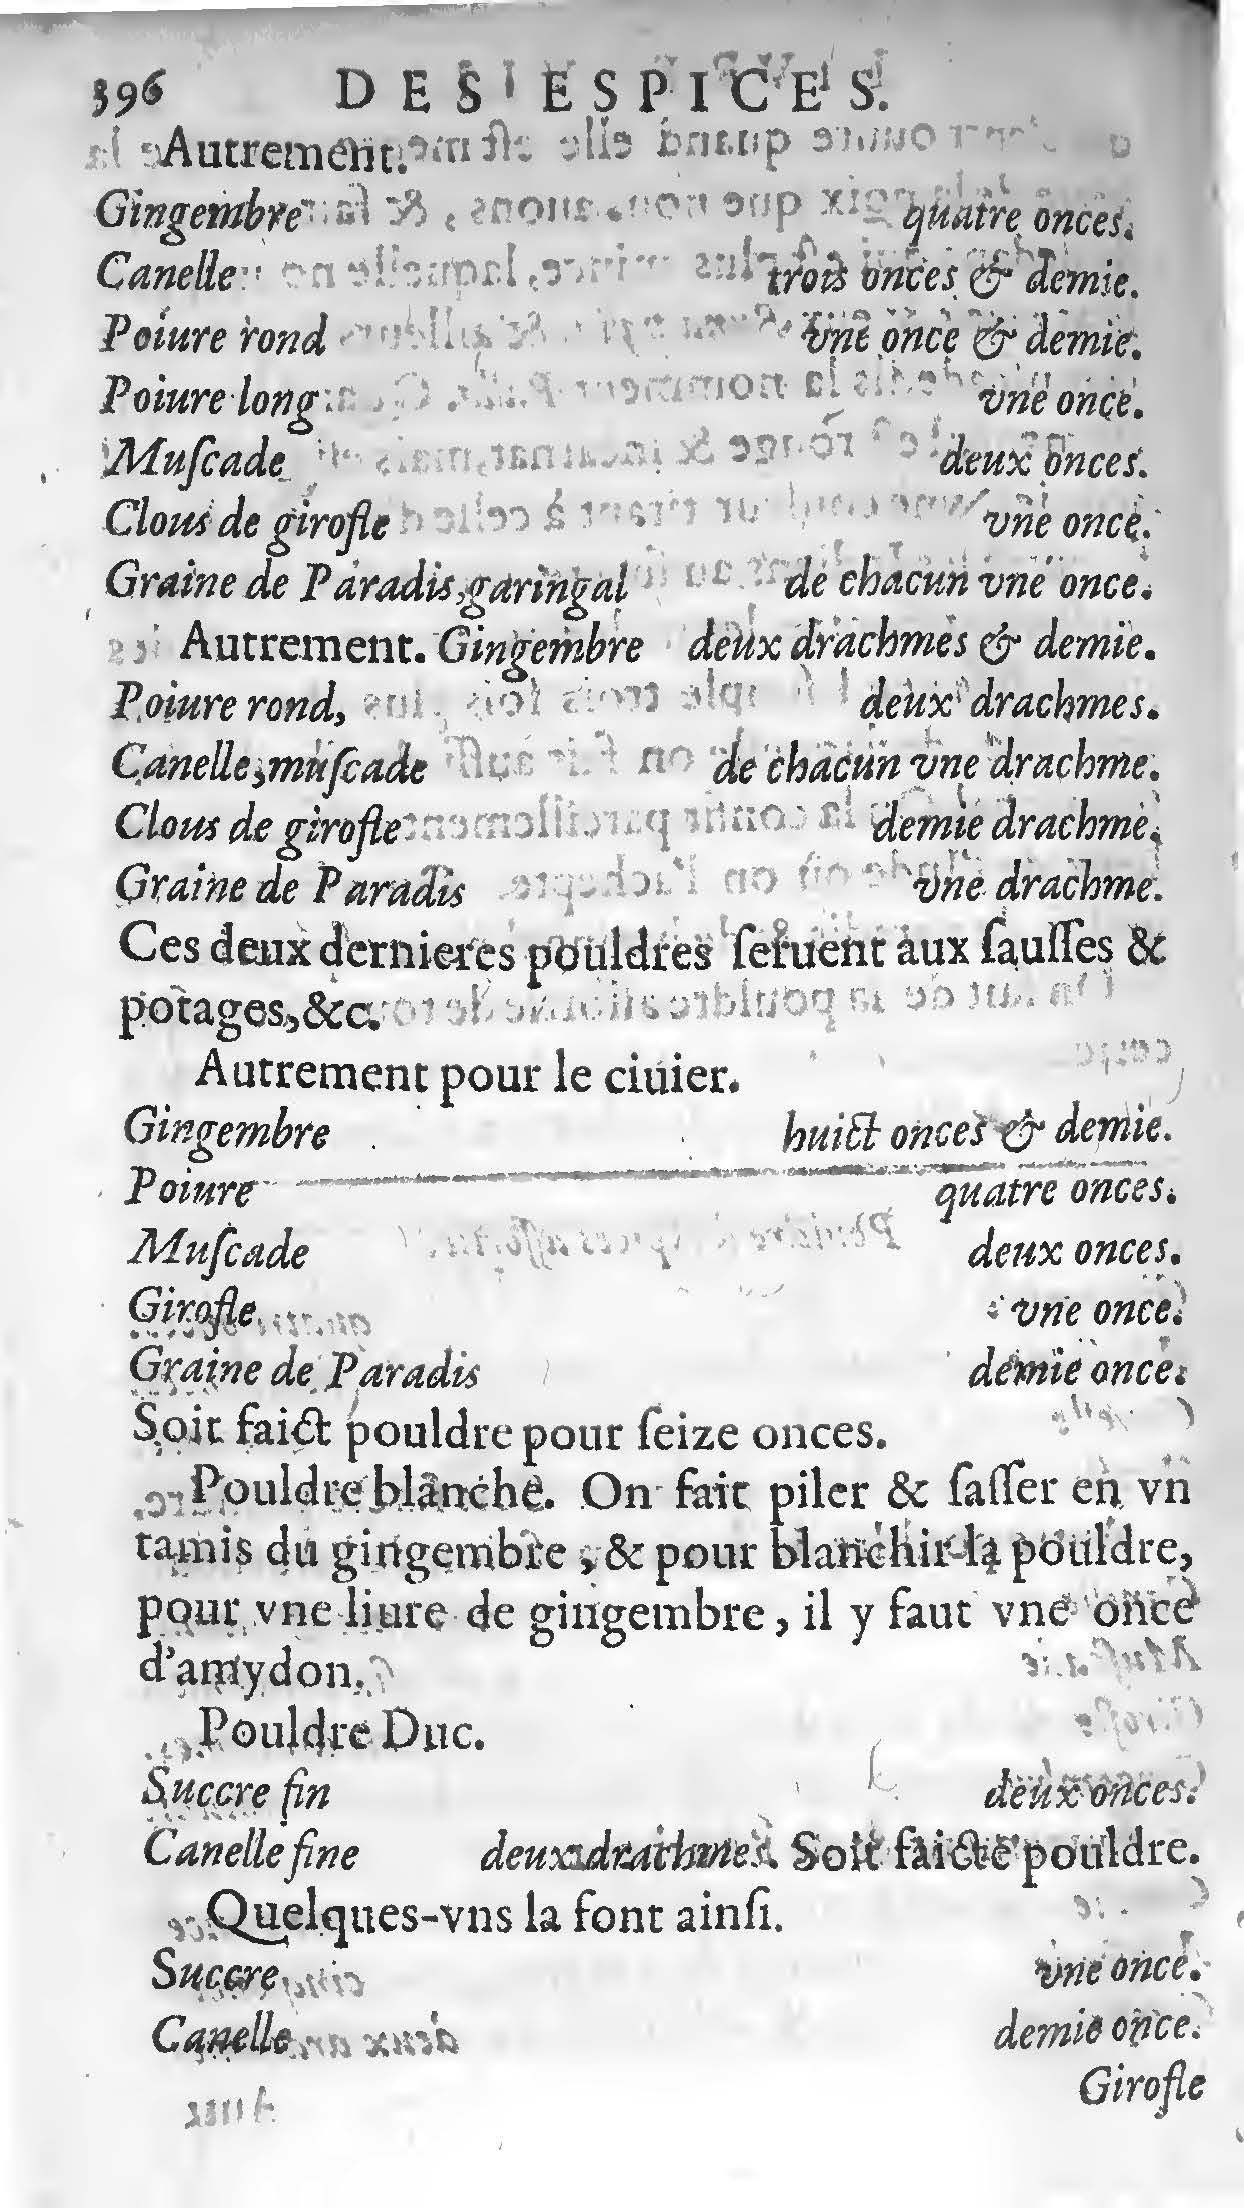 396 DES ESPICES.
Autrement.
Gingembre quatre onces.
Canelle trois onces & demie.
Poiure rond vne once & demie.
Poiure long vne once.
Muſcade deux onces.
Clous de girofle vne once.
Graine de Paradis, garingal de chacun vne once.
Autrement. Gingembre deux drachmes & demie.
Poiure rond, deux drachmes.
Canelle, muſcade de chacun vne drachme.
Clous de girofle demie drachme.
Graine de Paradis vne drachme.
Ces deux dernieres pouldres ſeruent aux ſauſſes &
potages, &c.
Autrement pour le ciuier.
Gingembre huict onces & demie.
Poiure quatre onces.
Muſcade deux onces.
Girofle vne once.
Graine de Paradis demie once.
Soit faict pouldre pour ſeize onces.
Pouldre blanche. On fait piler & ſaſſer en vn
tamis du gingembre, & pour blanchir la pouldre,
pour vne liure de gingembre, il y faut vne once
d'amydon.
Pouldre Duc.
Succre fin deux onces.
Canelle fine deux drachmes. Soit faicte pouldre.
Quelques-vns la font ainſi.
Succre vne once.
Canelle demie once.
Girofle